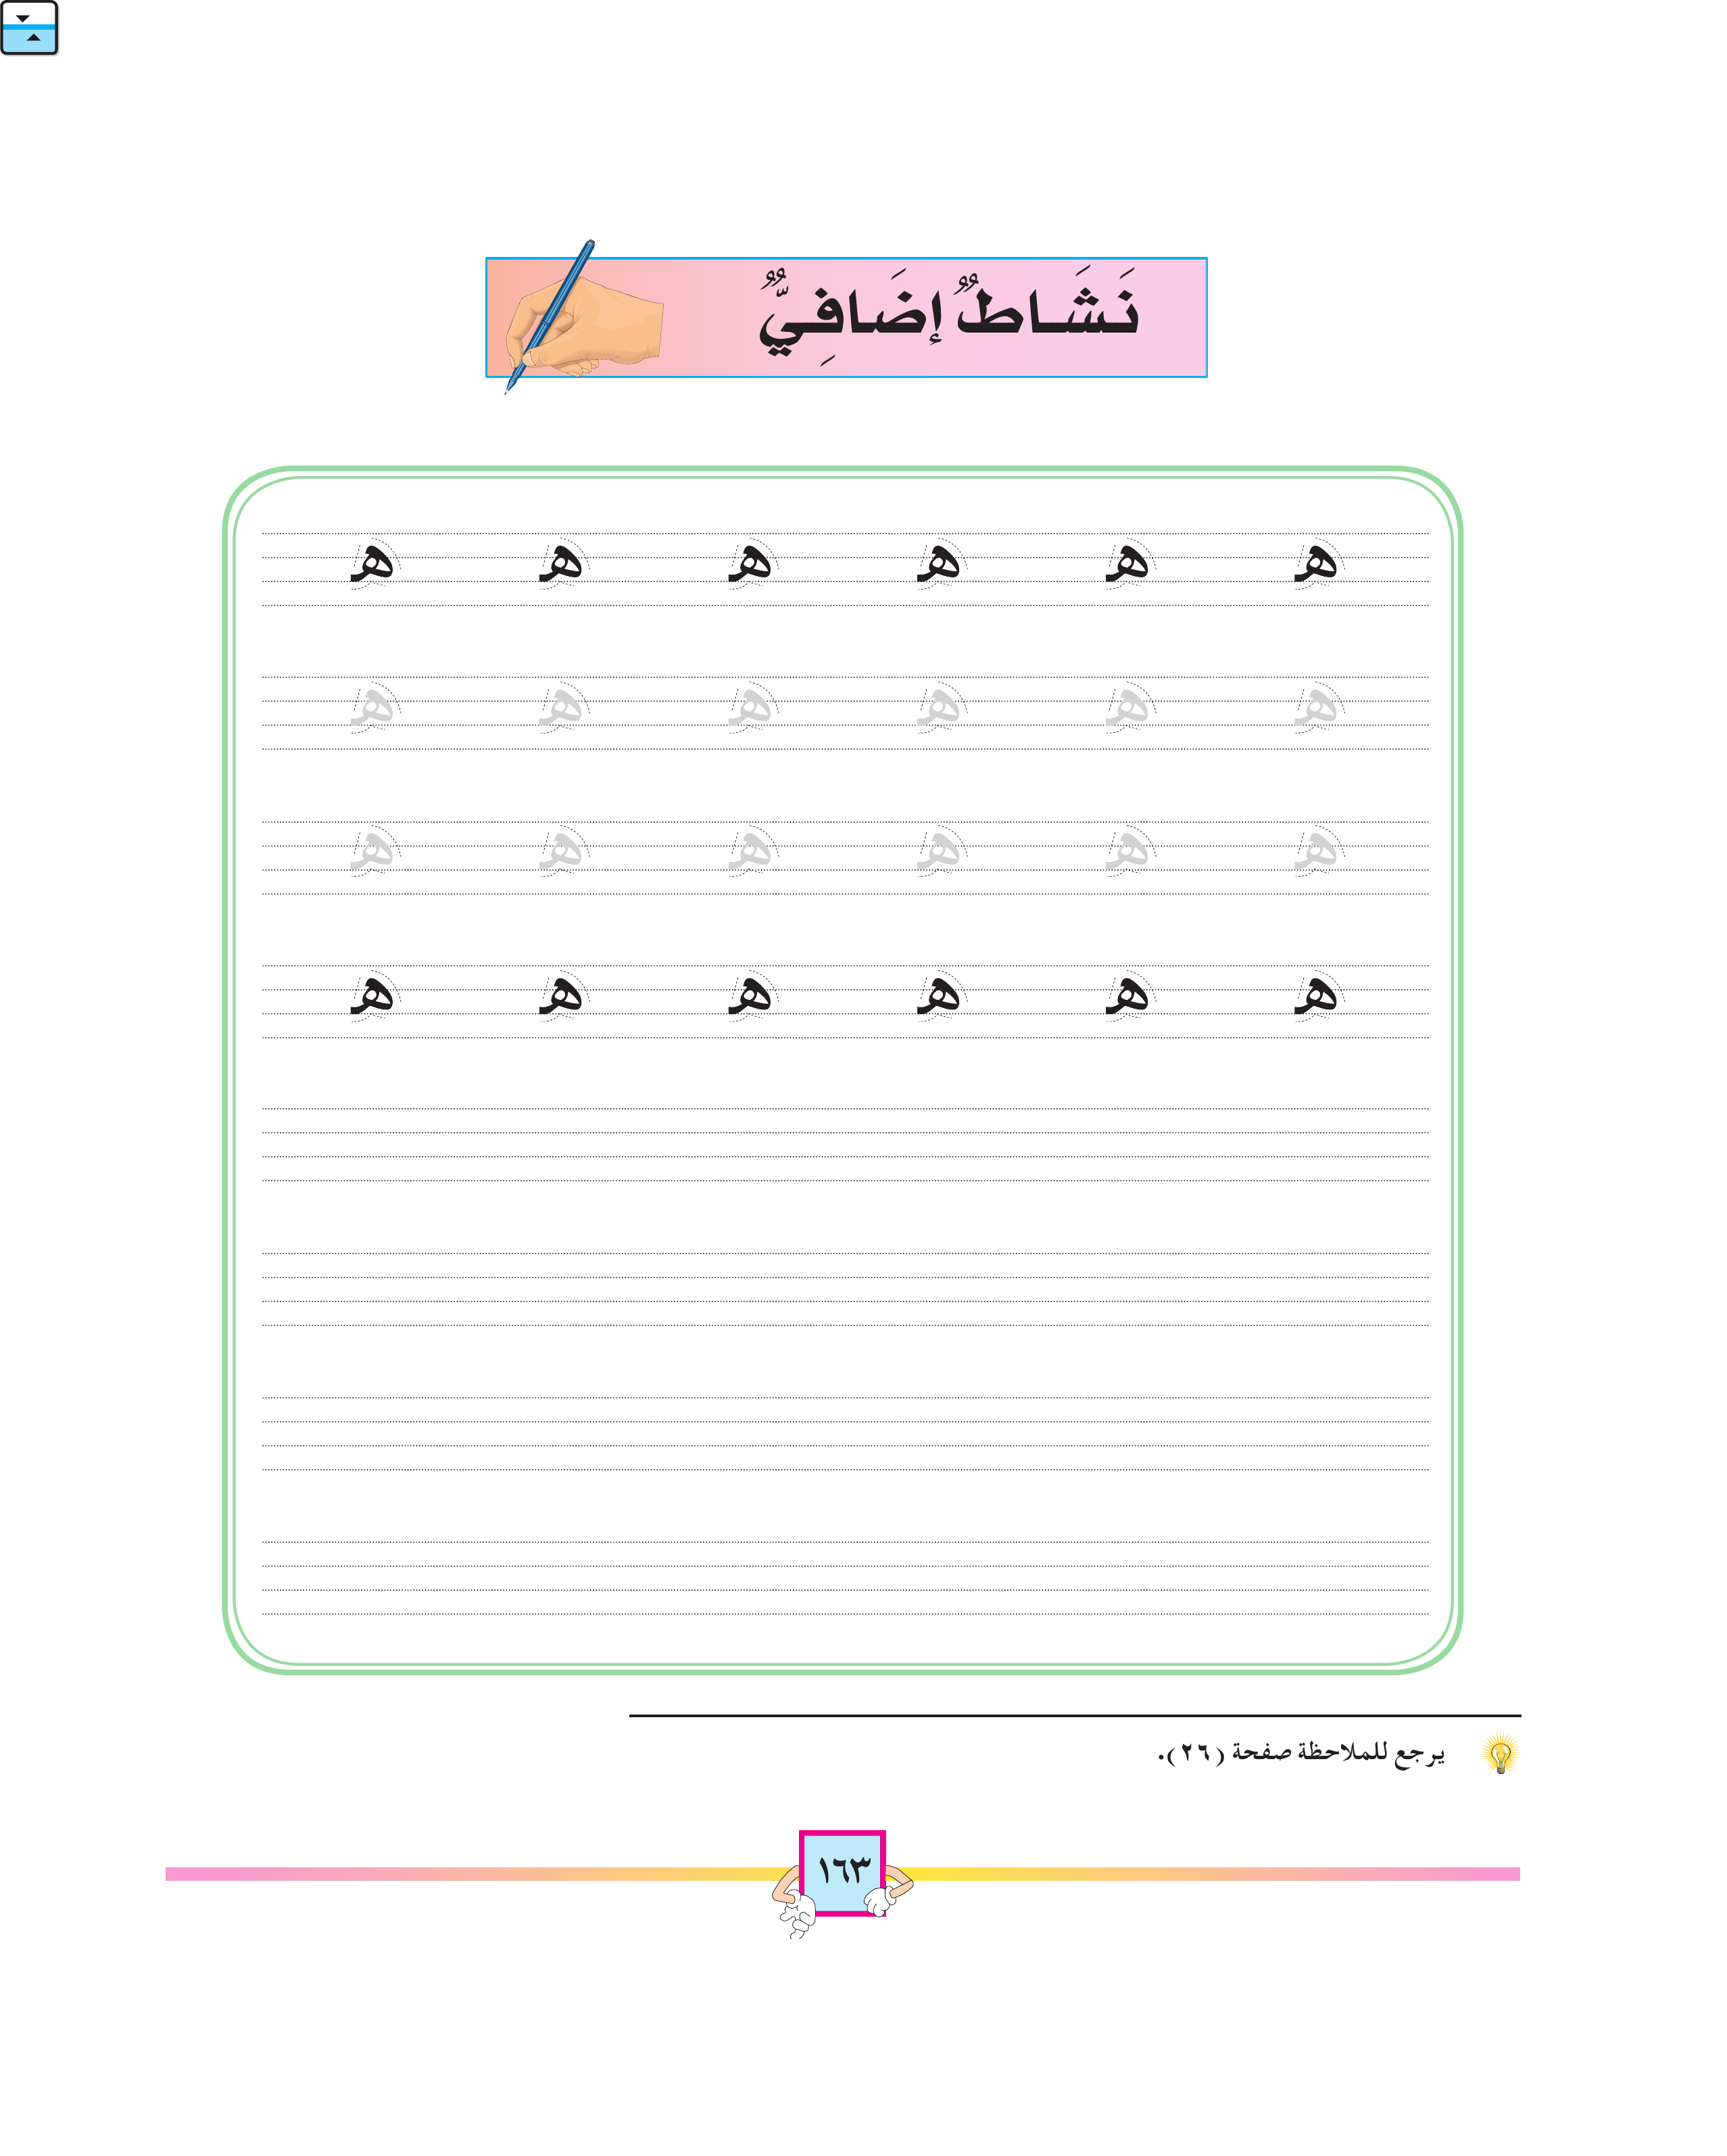 نَشَاطٌ إِضَافِيٌّ
هـ هـ هـ هـ هـ هـ
هـ هـ هـ هـ هـ هـ
هـ هـ هـ هـ هـ هـ
هـ هـ هـ هـ هـ هـ
يرجع للملاحظة صفحة (٢٦).
١٦٣